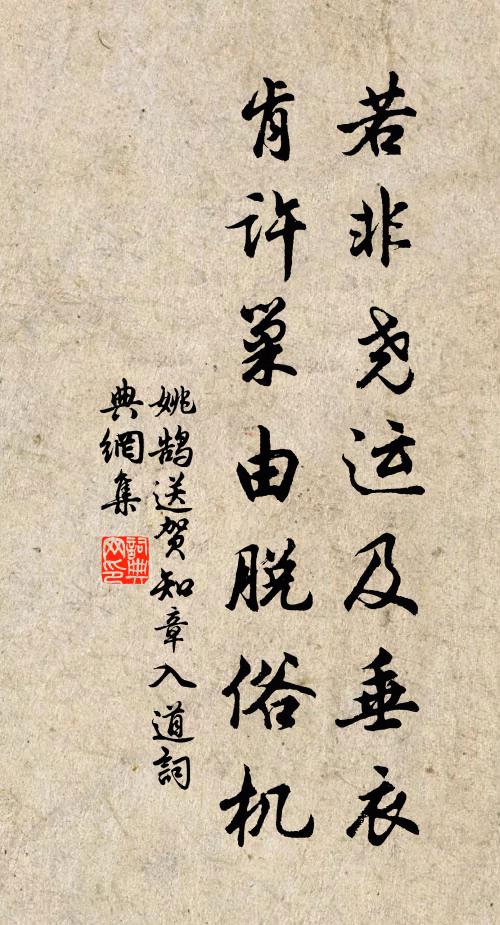 若非尧运及垂衣
肯许巢由脱俗机
姚鹄送贺知章入道詞
典網集
詞典
网印